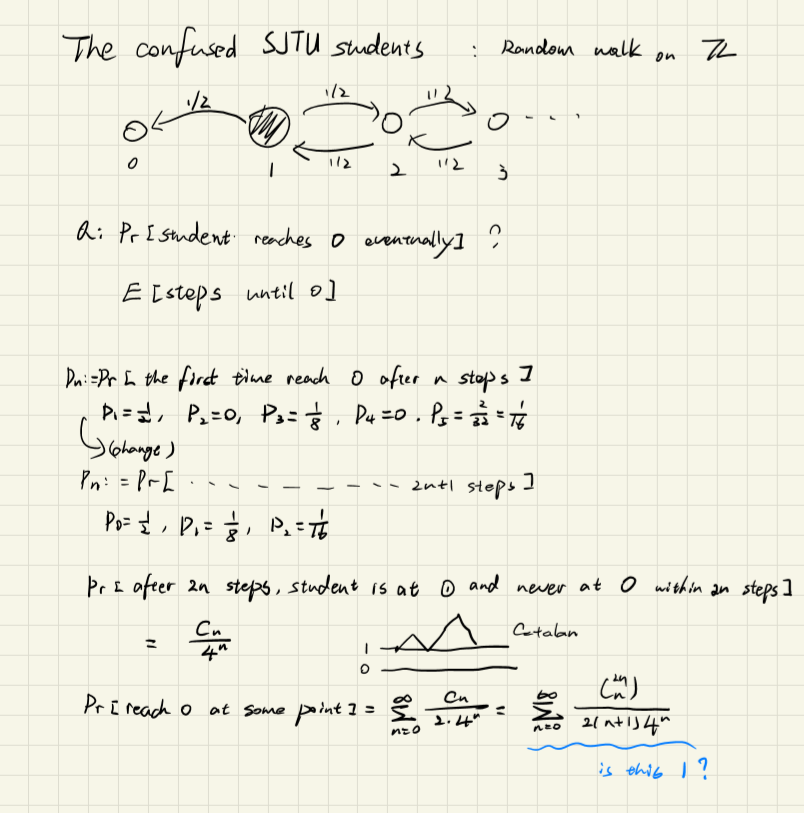 The confused SJTU students : Random walk on ℤ
1/2 1/2 1/2
0 1 1/2 2 1/2 3
Q: Pr[student reaches 0 eventually] ?
E[steps until 0]
Pn:=Pr[the first time reach 0 after n steps]
P₁=1/2, P₂=0, P₃=1/8, P₄=0. P₅=2/32=1/16
(change)
Pn:=Pr[ - - - - - - - - - 2n+1 steps]
P₀=1/2, P₁=1/8, P₂=1/16
Pr[after 2n steps, student is at ① and never at 0 within 2n steps]
= Cn/4ⁿ
1 Catalan
0
Pr[reach 0 at some point] = ∑_{n=0}^{∞} Cn/(2·4ⁿ) = ∑_{n=0}^{∞} (2n n)/(2(n+1)4ⁿ)
is this 1?